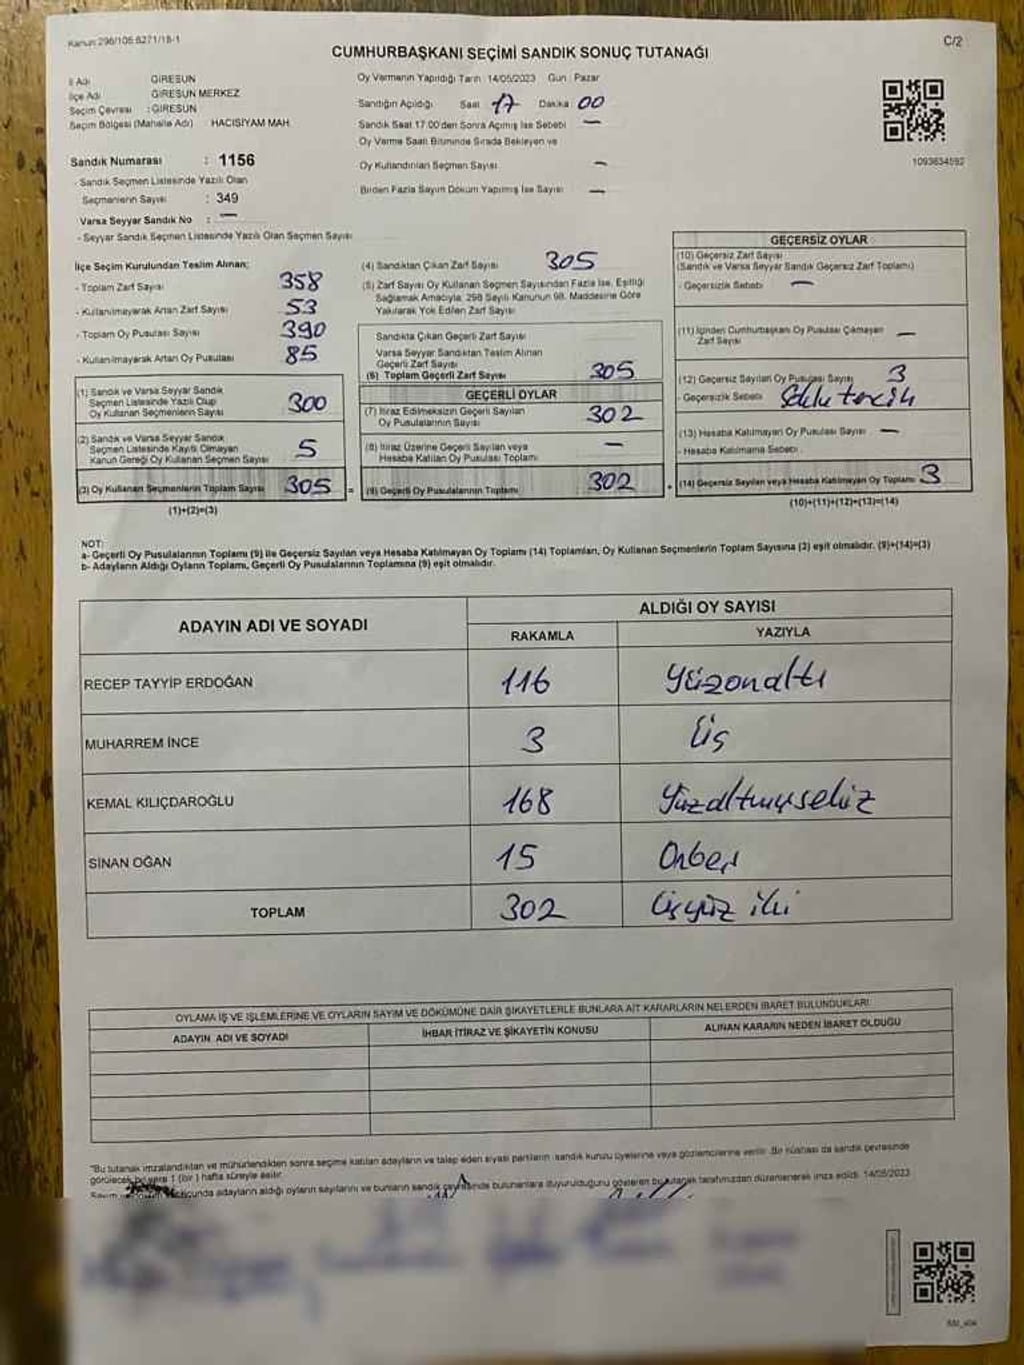 Kanun:298/106.6271/18-1
C/2
CUMHURBAŞKANI SEÇİMİ SANDIK SONUÇ TUTANAĞI
İl Adı GİRESUN
İlçe Adı GİRESUN MERKEZ
Seçim Çevresi : GİRESUN
Seçim Bölgesi (Mahalle Adı) HACISİYAM MAH.
Sandık Numarası : 1156
- Sandık Seçmen Listesinde Yazılı Olan
Seçmenlerin Sayısı : 349
Varsa Seyyar Sandık No : —
- Seyyar Sandık Seçmen Listesinde Yazılı Olan Seçmen Sayısı
Oy Vermenin Yapıldığı Tarih 14/05/2023 Gün : Pazar
Sandığın Açıldığı Saat 17 Dakika 00
Sandık Saat 17.00'den Sonra Açılmış İse Sebebi —
Oy Verme Saati Bitiminde Sırada Bekleyen ve
Oy Kullandırılan Seçmen Sayısı —
Birden Fazla Sayım Döküm Yapılmış İse Sayısı —
1093634592
İlçe Seçim Kurulundan Teslim Alınan;
- Toplam Zarf Sayısı 358
- Kullanılmayarak Artan Zarf Sayısı 53
- Toplam Oy Pusulası Sayısı 390
- Kullanılmayarak Artan Oy Pusulası 85
(1) Sandık ve Varsa Seyyar Sandık
Seçmen Listesinde Yazılı Olup
Oy Kullanan Seçmenlerin Sayısı 300
(2) Sandık ve Varsa Seyyar Sandık
Seçmen Listesinde Kayıtlı Olmayan
Kanun Gereği Oy Kullanan Seçmen Sayısı 5
(3) Oy Kullanan Seçmenlerin Toplam Sayısı 305 =
(1)+(2)=(3)
(4) Sandıktan Çıkan Zarf Sayısı 305
(5) Zarf Sayısı Oy Kullanan Seçmen Sayısından Fazla İse, Eşitliği
Sağlamak Amacıyla; 298 Sayılı Kanunun 98. Maddesine Göre
Yakılarak Yok Edilen Zarf Sayısı
Sandıkta Çıkan Geçerli Zarf Sayısı
Varsa Seyyar Sandıktan Teslim Alınan
Geçerli Zarf Sayısı
(6) Toplam Geçerli Zarf Sayısı 305
GEÇERLİ OYLAR
(7) İtiraz Edilmeksizin Geçerli Sayılan
Oy Pusulalarının Sayısı 302
(8) İtiraz Üzerine Geçerli Sayılan veya
Hesaba Katılan Oy Pusulası Toplamı —
(9) Geçerli Oy Pusulalarının Toplamı 302 +
GEÇERSİZ OYLAR
(10) Geçersiz Zarf Sayısı
(Sandık ve Varsa Seyyar Sandık Geçersiz Zarf Toplamı)
- Geçersizlik Sebebi —
(11) İçinden Cumhurbaşkanı Oy Pusulası Çıkmayan
Zarf Sayısı —
(12) Geçersiz Sayılan Oy Pusulası Sayısı 3
- Geçersizlik Sebebi
(13) Hesaba Katılmayan Oy Pusulası Sayısı —
- Hesaba Katılmama Sebebi
(14) Geçersiz Sayılan veya Hesaba Katılmayan Oy Toplamı 3
(10)+(11)+(12)+(13)=(14)
NOT:
a- Geçerli Oy Pusulalarının Toplamı (9) ile Geçersiz Sayılan veya Hesaba Katılmayan Oy Toplamı (14) Toplamları, Oy Kullanan Seçmenlerin Toplam Sayısına (3) eşit olmalıdır. (9)+(14)=(3)
b- Adayların Aldığı Oyların Toplamı, Geçerli Oy Pusulalarının Toplamına (9) eşit olmalıdır.
ADAYIN ADI VE SOYADI
ALDIĞI OY SAYISI
RAKAMLA YAZIYLA
RECEP TAYYİP ERDOĞAN 116 Yüzonaltı
MUHARREM İNCE 3 Üç
KEMAL KILIÇDAROĞLU 168 Yüzaltmışsekiz
SİNAN OĞAN 15 Onbeş
TOPLAM 302 Üçyüz iki
OYLAMA İŞ VE İŞLEMLERİNE VE OYLARIN SAYIM VE DÖKÜMÜNE DAİR ŞİKAYETLERLE BUNLARA AİT KARARLARIN NELERDEN İBARET BULUNDUKLARI
ADAYIN ADI VE SOYADI İHBAR İTİRAZ VE ŞİKAYETİN KONUSU ALINAN KARARIN NEDEN İBARET OLDUĞU
"Bu tutanak imzalandıktan ve mühürlendikten sonra seçime katılan adayların ve talep eden siyasi partilerin sandık kurulu üyelerine veya gözlemcilerine verilir. Bir nüshası da sandık çevresinde
görülecek bir yere 1 (bir) hafta süreyle asılır.
Sayım sonucunda adayların aldığı oyların sayılarını ve bunların sandık çevresinde bulunanlara duyurulduğunu gösteren bu tutanak tarafımızdan düzenlenerek imza edildi. 14/05/2023